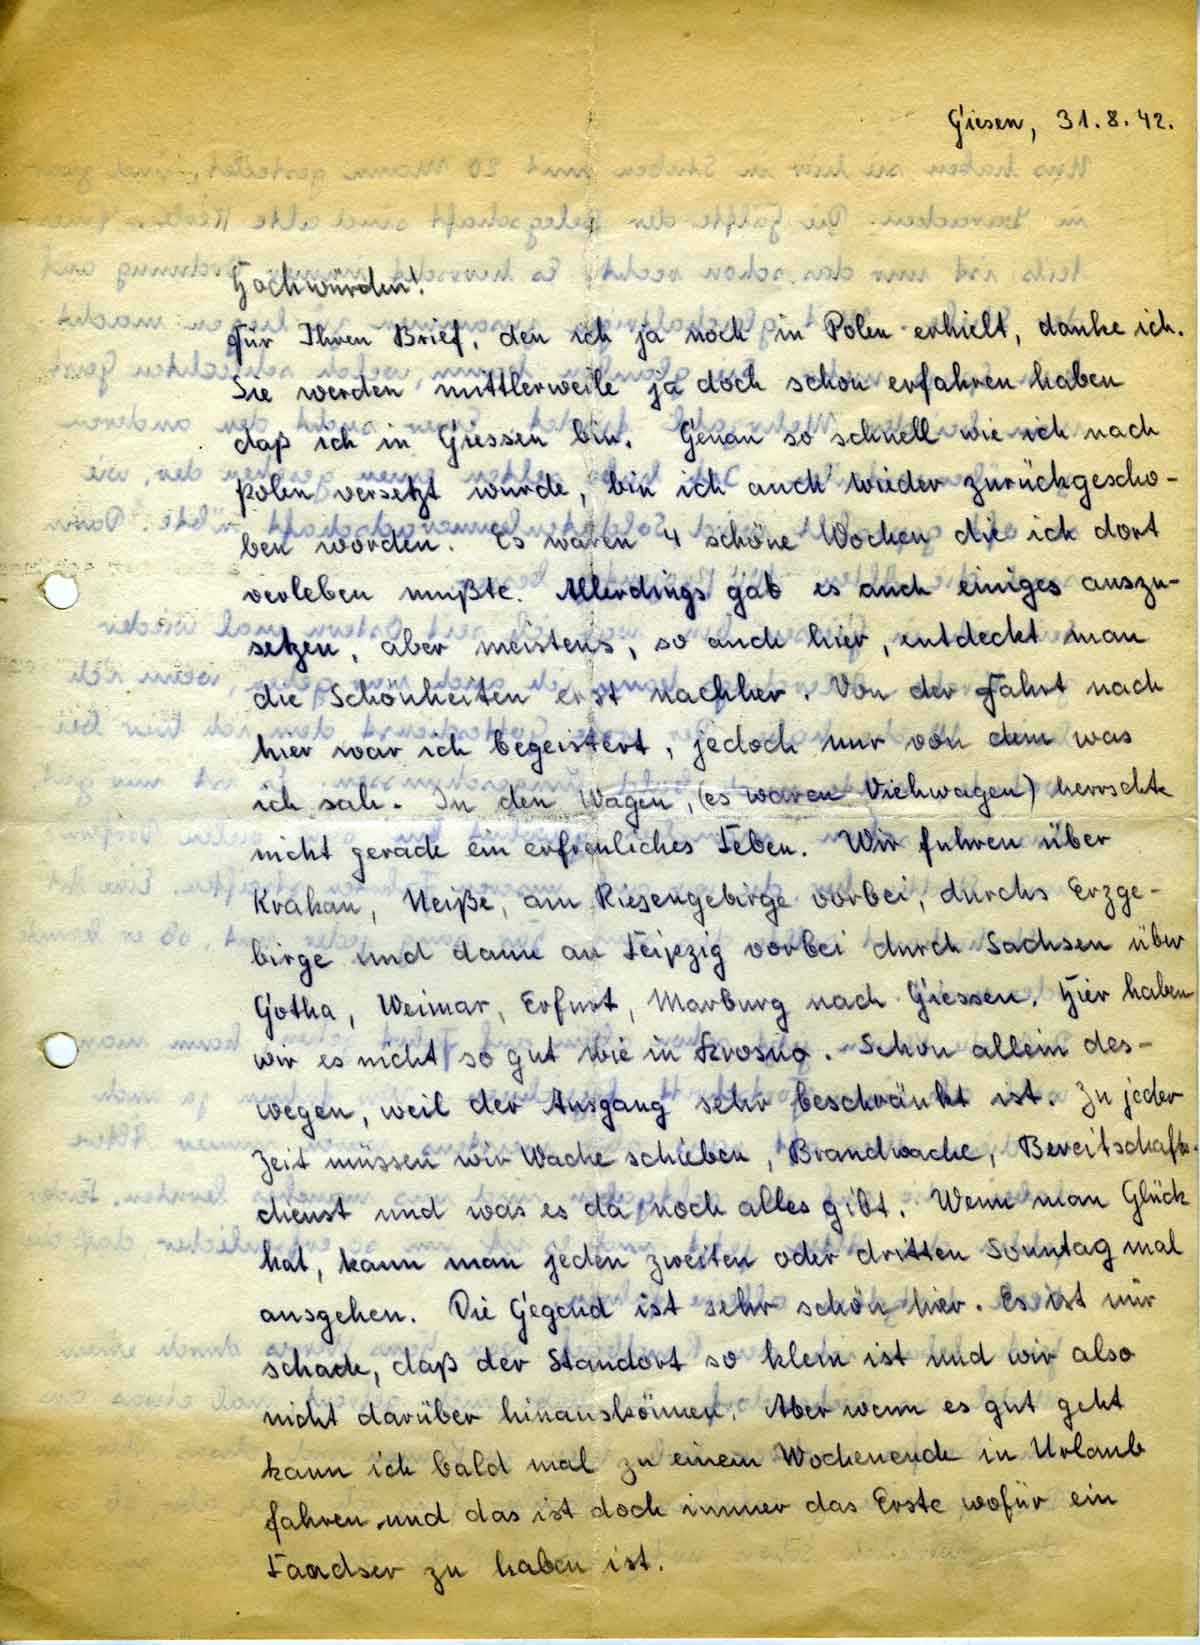 Giesen, 31.8.42.
Hochwürden!
Für Ihren Brief, den ich ja noch in Polen erhielt, danke ich.
Sie werden mittlerweile ja doch schon erfahren haben
daß ich in Giessen bin. Genau so schnell wie ich nach
Polen versetzt wurde, bin ich auch wieder zurückgescho-
ben worden. Es waren 4 schöne Wochen die ich dort
verleben mußte. Allerdings gab es auch einiges auszu-
setzen, aber meistens, so auch hier, entdeckt man
die Schönheiten erst nachher. Von der Fahrt nach
hier war ich begeistert, jedoch nur von dem was
ich sah. In den Wagen, (es waren Viehwagen) herrschte
nicht gerade ein erfreuliches Leben. Wir fuhren über
Krakau, Neiße, am Riesengebirge vorbei, durchs Erzge-
birge und dann an Leipzig vorbei durch Sachsen über
Gotha, Weimar, Erfurt, Marburg nach Giessen. Hier haben
wir es nicht so gut wie in Krosno. Schon allein des-
wegen, weil der Ausgang sehr beschränkt ist. Zu jeder
Zeit müssen wir Wache schieben, Brandwache, Bereitschafts-
dienst und was es da noch alles gibt. Wenn man Glück
hat, kann man jeden zweiten oder dritten Sonntag mal
ausgehen. Die Gegend ist sehr schön hier. Es ist nur
schade, daß der Standort so klein ist und wir also
nicht darüber hinauskönnen. Aber wenn es gut geht
kann ich bald mal zu einem Wochenende in Urlaub
fahren und das ist doch immer das Erste wofür ein
Landser zu haben ist.